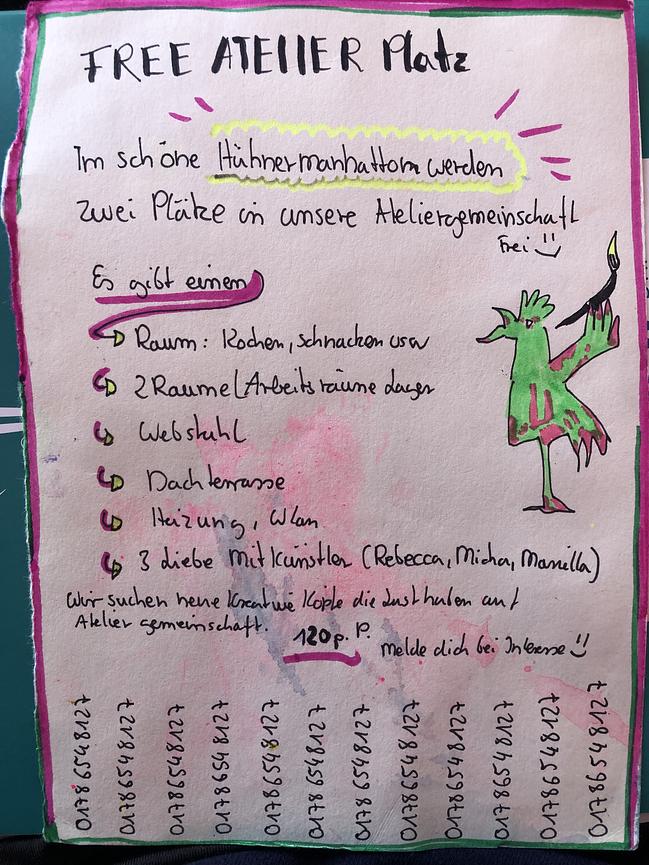 FREE ATELIER Platz
Im schöne Hühnermanhattan werden
zwei Plätze in unsere Ateliergemeinschaft
Frei
Es gibt einen
Raum: Kochen, schnacken usw
2 Räume (Arbeitsräume
Webstuhl
Dachterrasse
Heizung, Wlan
3 liebe Mitkünstler (Rebecca, Micha, Manilla)
Wir suchen neue kreative Köpfe die Lust haben auf
Atelier gemeinschaft.
120 p. P.
melde dich bei Interesse
01786548127
01786548127
01786548127
01786548127
01786548127
01786548127
01786548127
01786548127
01786548127
01786548127
01786548127
01786548127